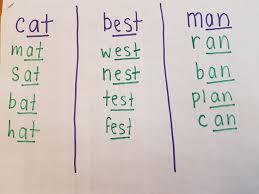 cat best man
mat west ran
sat nest ban
bat test plan
hat fest can